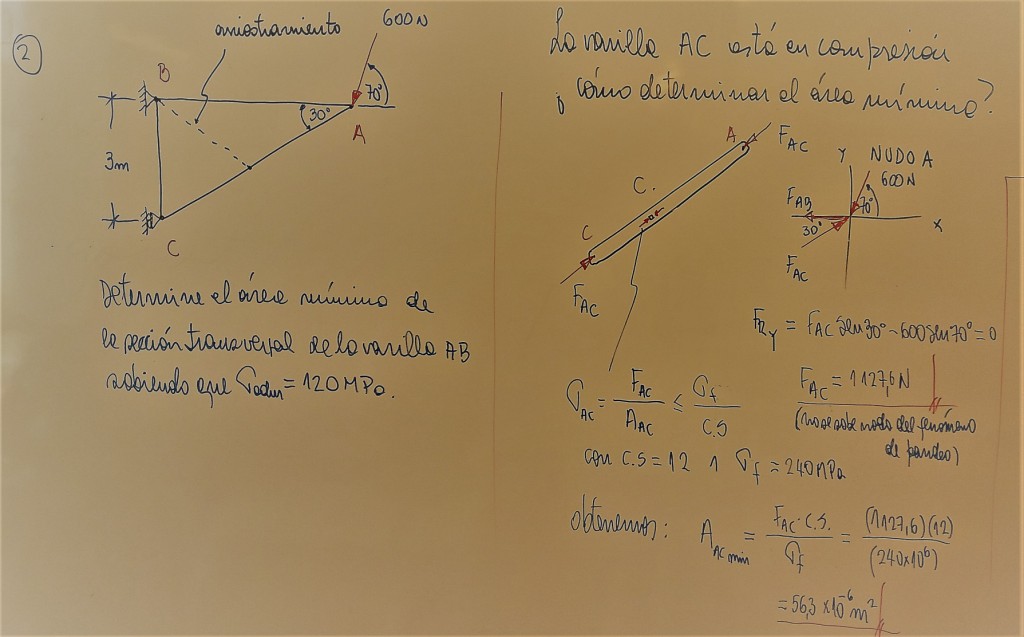 2
arriostramiento
600N
B
70°
30°
A
3m
C
Determine el área mínima de
la sección transversal de la varilla AB
sabiendo que σadm = 120 MPa.
La varilla AC está en compresión
¿cómo determinar el área mínima?
A
FAC
C.
C
FAC
Y
NUDO A
600N
FAB
70°
30°
X
FAC
FRY = FAC sen 30° - 600 sen 70° = 0
FAC = 1127,6 N
(no se sabe nada del fenómeno
de pandeo)
σAC = FAC / AAC ≤ σf / C.S
con C.S = 12 y σf = 240 MPa
obtenemos: AAC min = FAC · C.S. / σf = (1127,6)(12) / (240x10⁶)
= 56,3 x10⁻⁶ m²